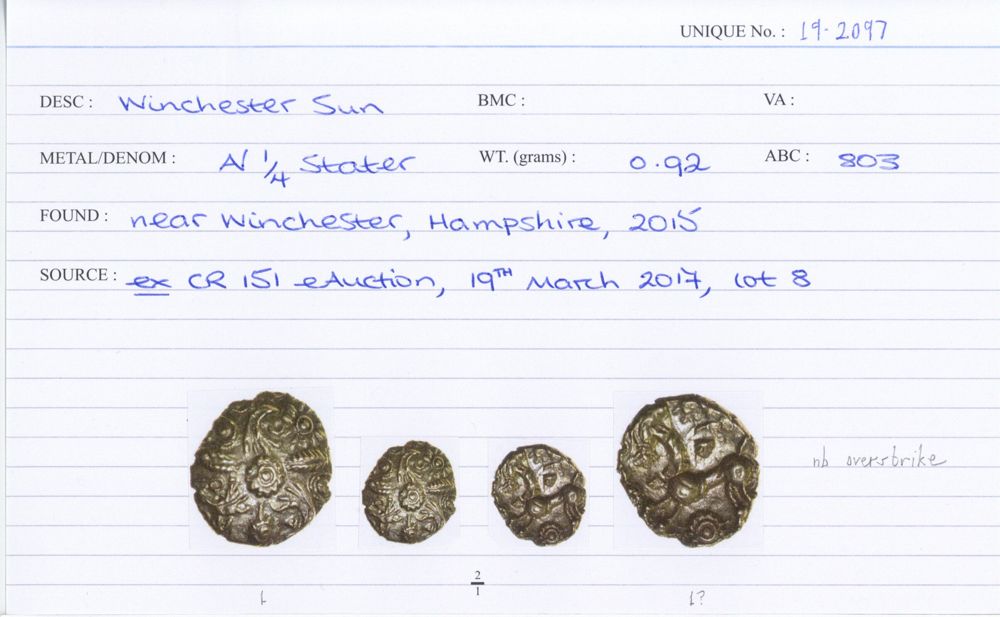 UNIQUE No. : 19-2097
DESC : Winchester Sun BMC : VA :
METAL/DENOM : A/ 1/4 Stater WT. (grams) : 0.92 ABC : 803
FOUND : near Winchester, Hampshire, 2015
SOURCE : ex CR 151 eAuction, 19TH March 2017, lot 8
nb overstrike
2/1
1 1?